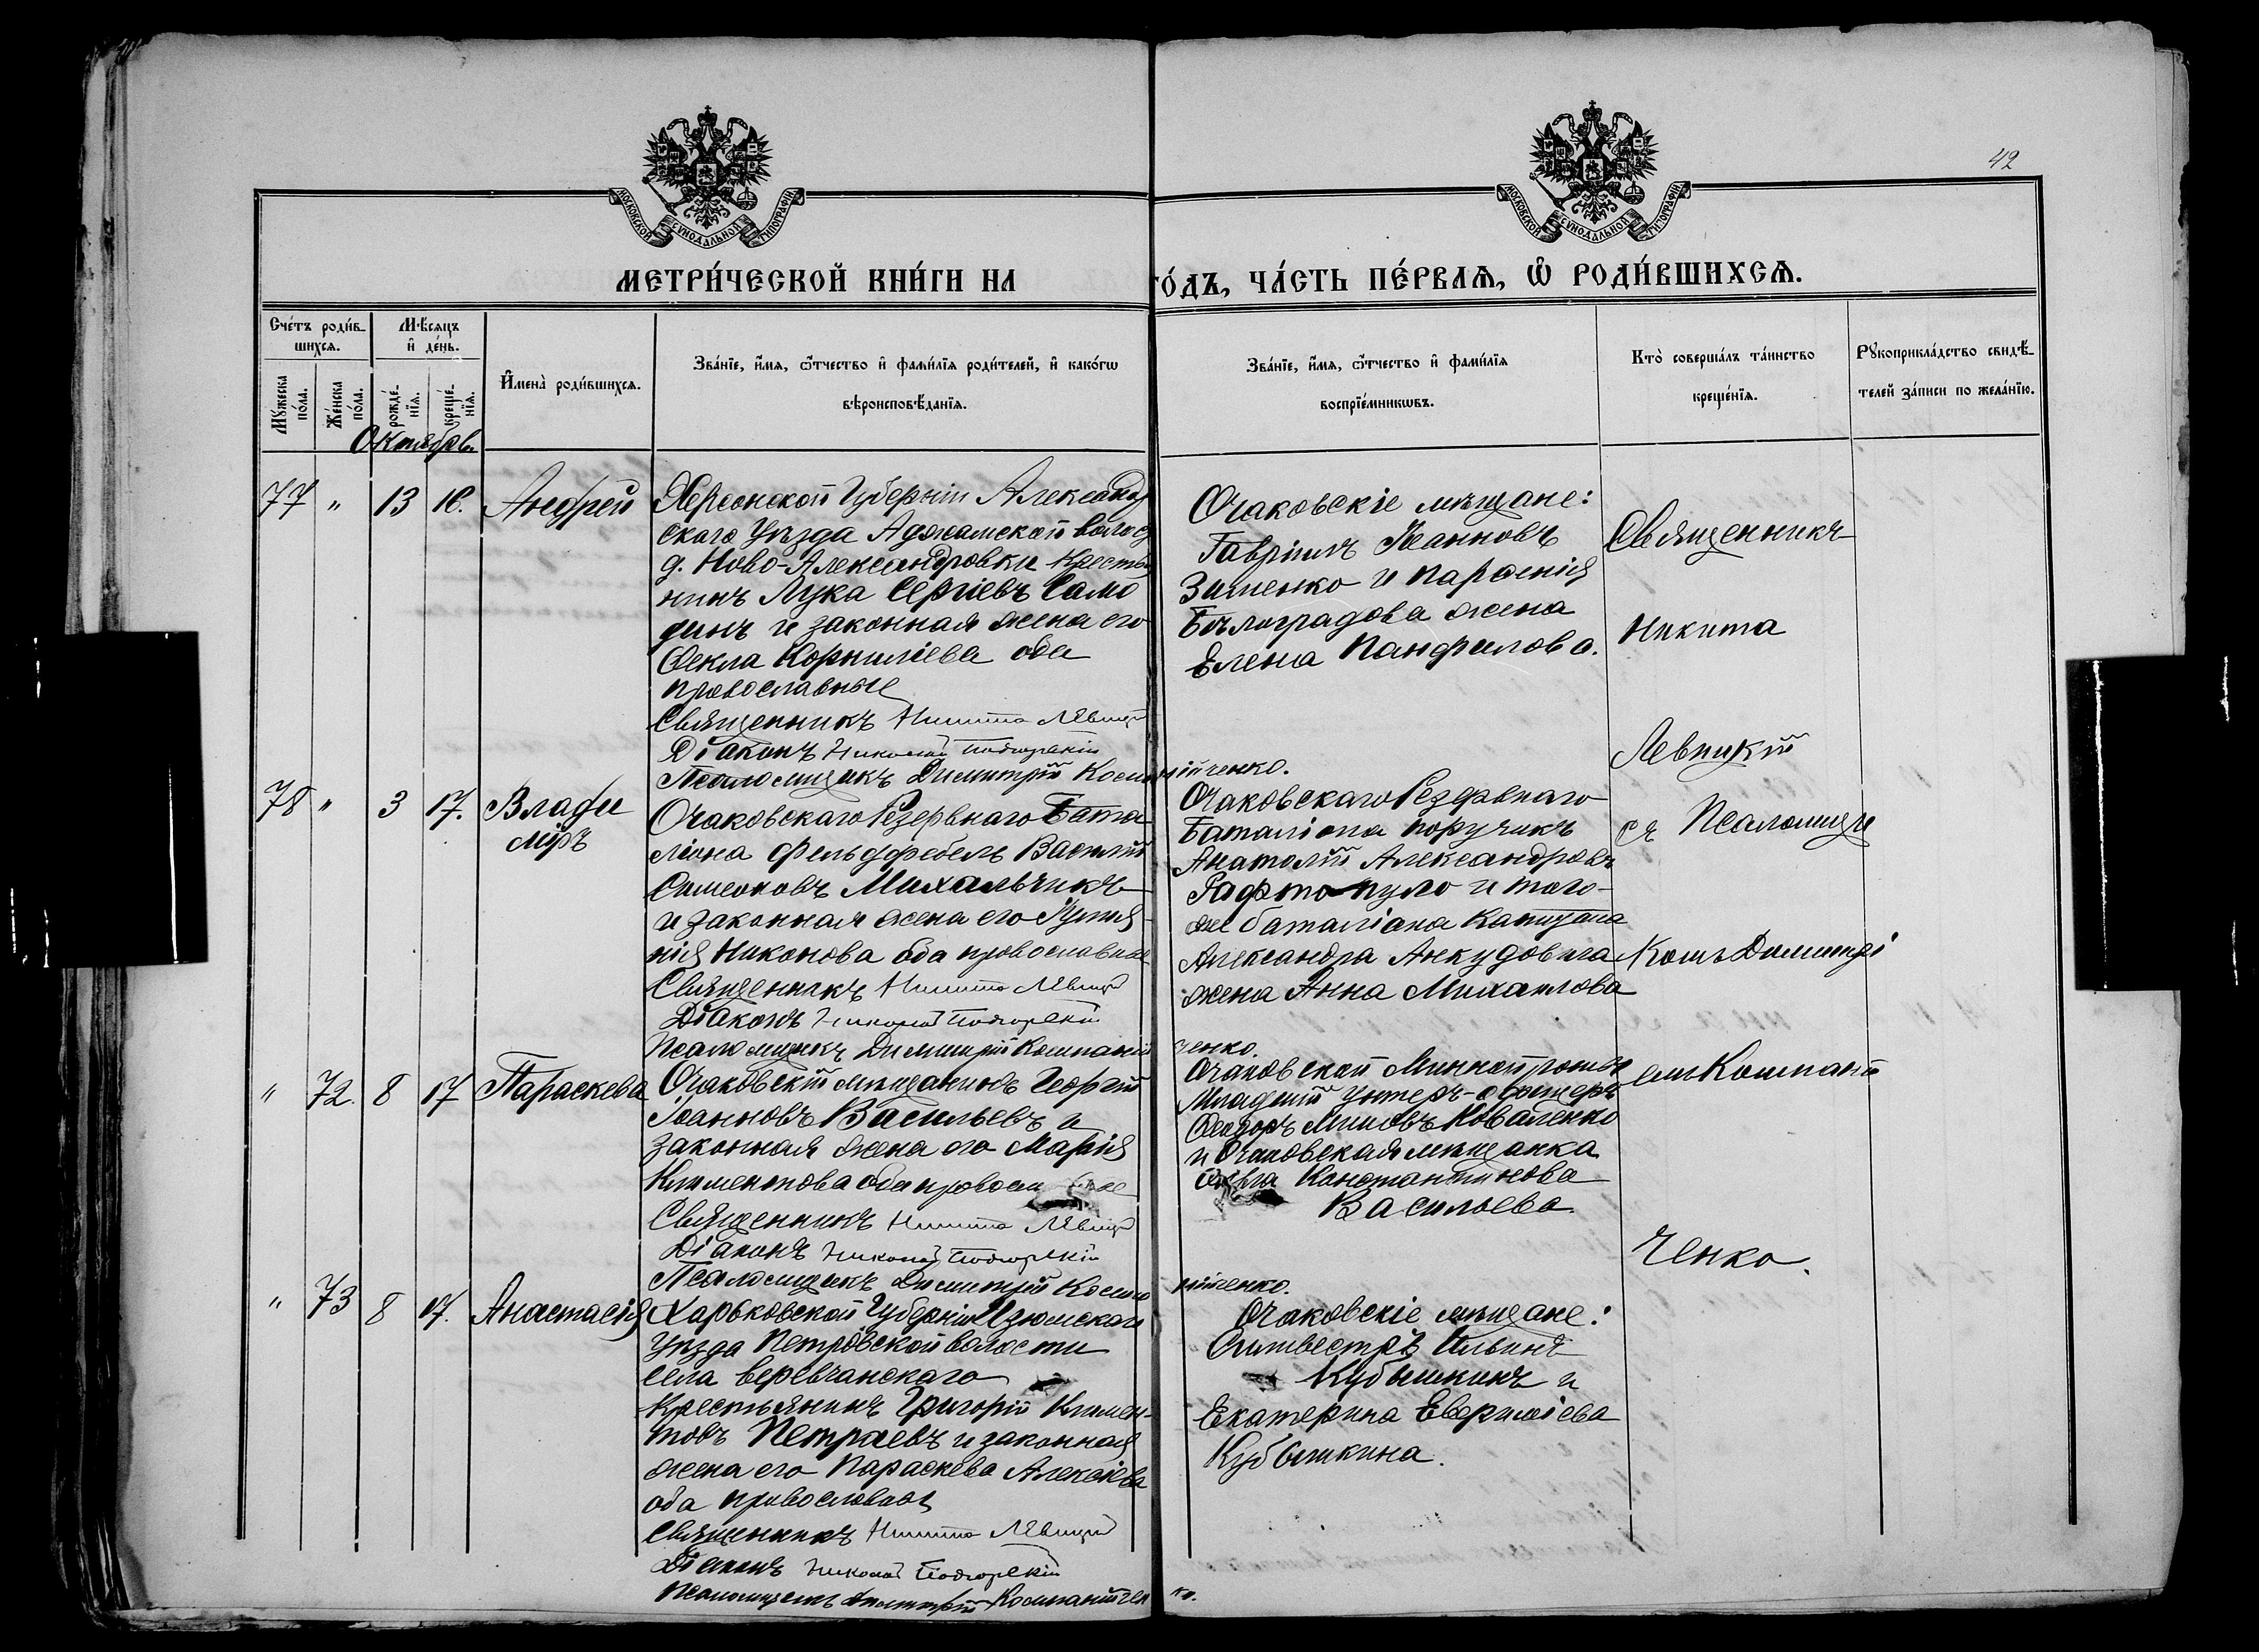 42
МОСКОВСКОЙ СУНОДАЛЬНОЙ ТИПОГРАФІИ
МОСКОВСКОЙ СУНОДАЛЬНОЙ ТИПОГРАФІИ
МЕТРИ́ЧЕСКОЙ КНИ́ГИ НА
ГО́ДЪ, ЧА́СТЬ ПЕ́РВАѦ, Ѡ҆ РОДИ́ВШИХСѦ.
Сче́тъ роди́в-
шихсѧ.
Мꙋжеска по́ла.
Же́нска по́ла.
Мѣ́сѧцъ
и҆ де́нь.
рожде́-
нїѧ.
креще́-
нїѧ.
И҆мена̀ роди́вшихсѧ.
Зва́нїе, и҆́мѧ, ѻ҆́тчество и҆ фами́лїѧ роди́телей, и҆ како́гѡ
вѣроисповѣ́данїѧ.
Зва́нїе, и҆́мѧ, ѻ҆́тчество и҆ фами́лїѧ
воспрїе́мникѡвъ.
Кто̀ соверша́лъ та́инство
креще́нїѧ.
Рꙋкоприкла́дство свидѣ́-
телей за́писи по жела́нїю.
Октябрь
77 " 13 16. Андрей
Херсонской Губерніи Александр
скаго Уѣзда Аджамской волос
д. Ново-Александровки Крестья
нинъ Лука Сергіевъ Само
динъ и законная жена его
Ѳекла Корниліева оба
православные
Священникъ Никита Левицкій
Діаконъ Николай Подгорскій
Псаломщикъ Димитрій Компанійченко.
Очаковскіе мѣщане:
Гавріилъ Іоанновъ
Зименко и Парѳенія
Бѣлоградова жена
Елена Панфилова.
78 " 3 17. Влади
міръ
Очаковскаго Резервнаго Бата
ліона фельдфебель Василій
Симеоновъ Михальчикъ
и законная жена его
нія Никонова оба православные
Священникъ Никита Левицкій
Діаконъ Николай Подгорскій
Псаломщикъ Димитрій Компанійченко.
Очаковскаго Резервнаго
Баталіона поручикъ
Анатолій Александровъ
Рафтопуло и того-
же баталіона Капитана
Александра Анкудовича
жена Анна Михаилова
" 72. 8 17 Параскева
Очаковскій мѣщанинъ Георгій
Іоанновъ Васильевъ и
законная жена его Марія
Климентова оба
Священникъ Никита Левицкій
Діаконъ Николай Подгорскій
Псаломщикъ Димитрій Компанійченко.
Очаковской Минной роты
Младшій Унтеръ-офицеръ
Ѳеодоръ Коваленко
и Очаковская мѣщанка
Константинова
Васильева.
" 73 8 17. Анастасія
Харьковской Губерніи Изюмскаго
Уѣзда Петровской волости
села
Крестьянинъ Григорій Климен-
товъ Петраевъ и законная
жена его Параскева Алексіева
оба православные
Священникъ Никита Левицкій
Діаконъ Николай Подгорскій
Псаломщикъ Димитрій Компанійченко.
Очаковскіе мѣщане:
Силвестръ Ильинъ
Кубышкинъ и
Екатерина
Кубышкина.
Священникъ
Никита
Левицкій
съ Псаломщи
комъ Димитрі
емъ Компаній
ченко.